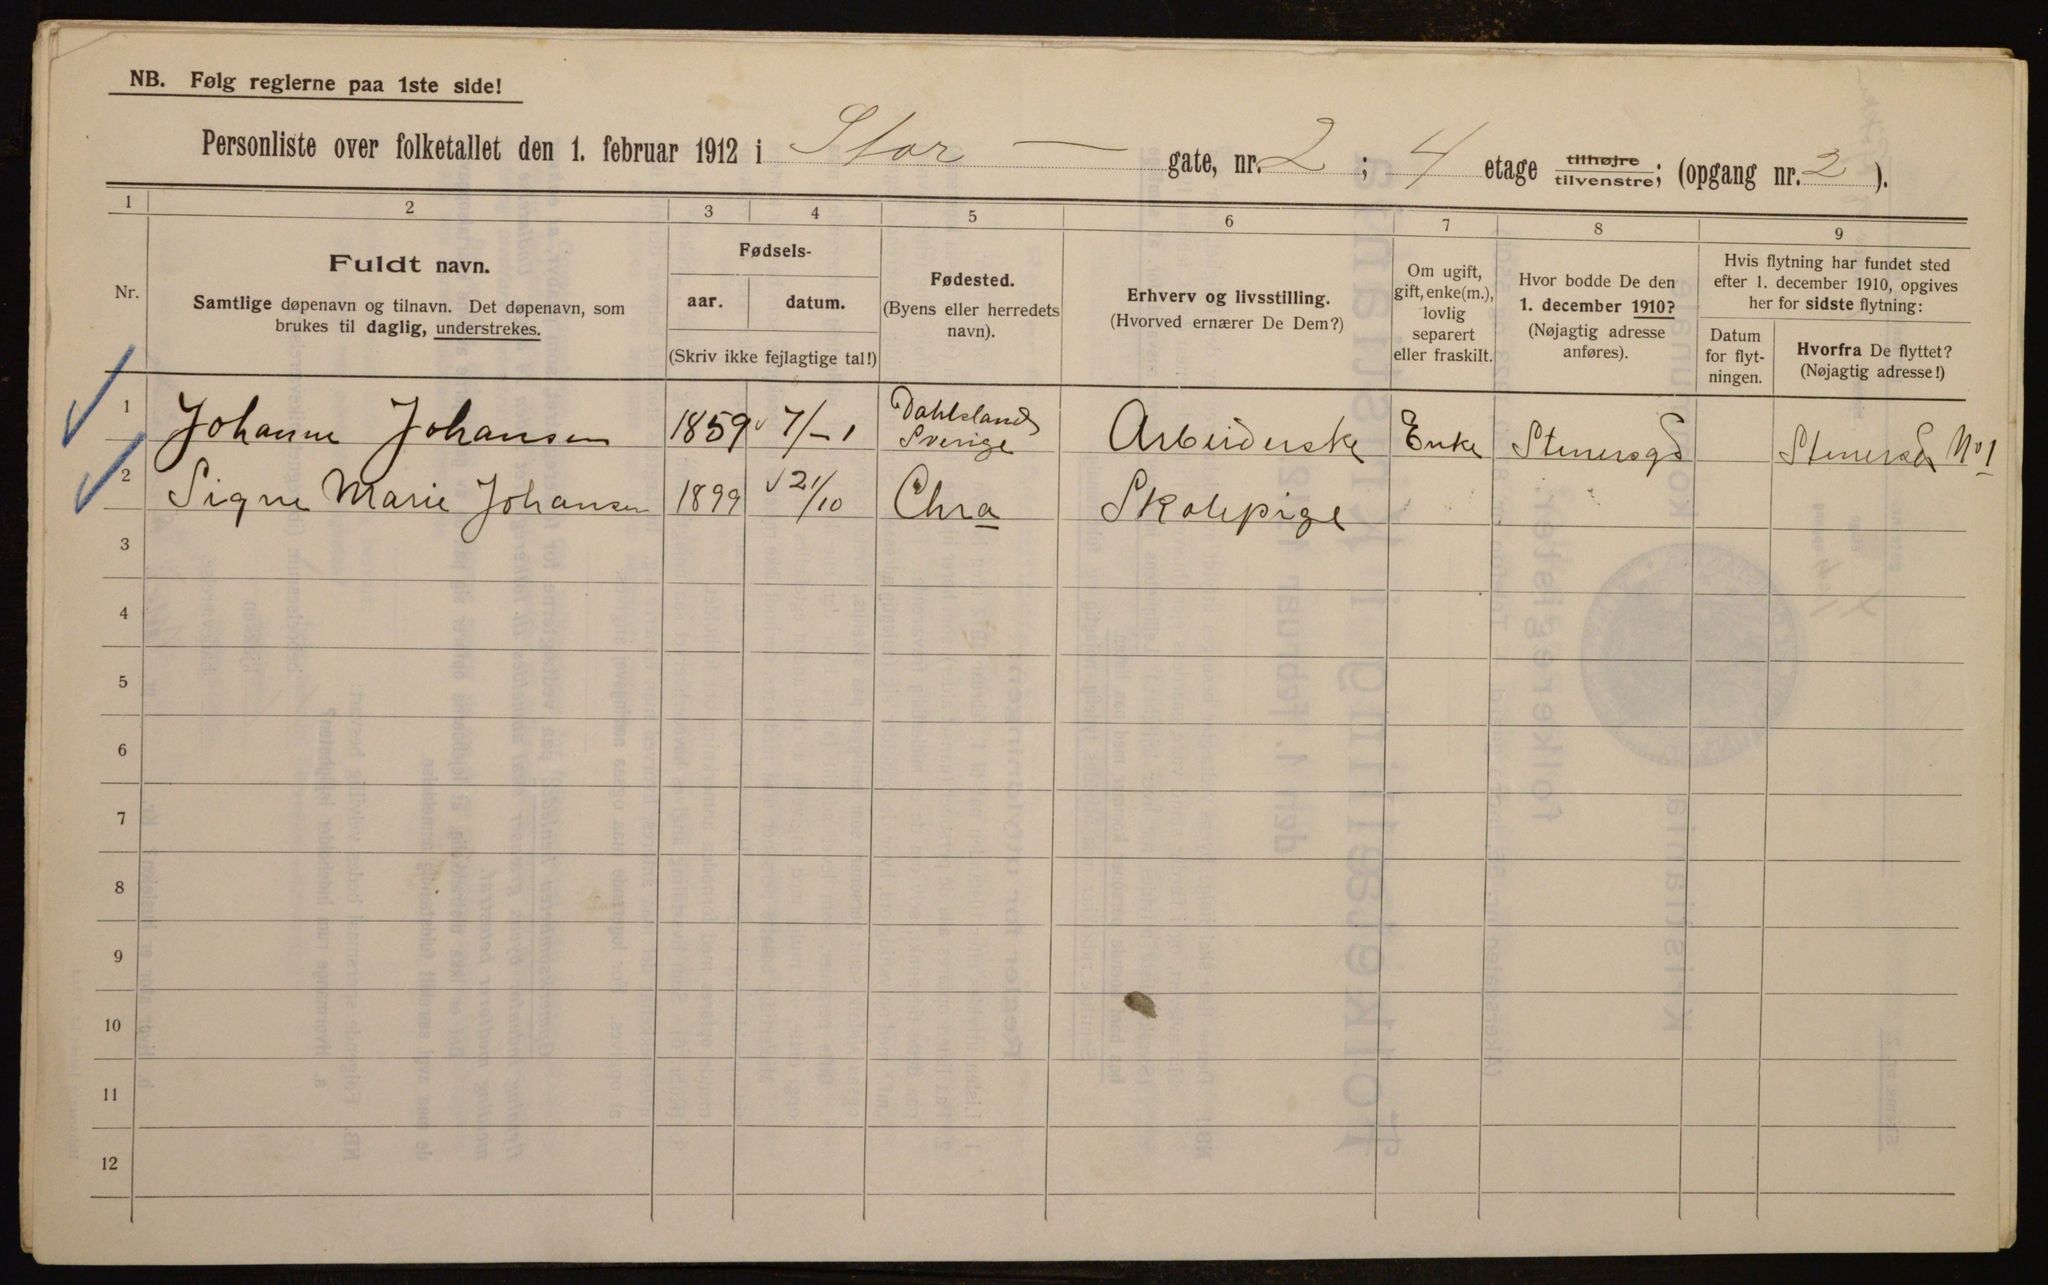 NB. Følg reglerne paa 1ste side!
Personliste over folketallet den 1. februar 1912 i Stor — gate, nr. 2 ; 4 etage tilhøjre tilvenstre; (opgang nr. 2 ).
1 2 3 4 5 6 7 8 9
Nr.
Fuldt navn.
Samtlige døpenavn og tilnavn. Det døpenavn, som
brukes til daglig, understrekes.
Fødsels-
aar. datum.
(Skriv ikke fejlagtige tal!)
Fødested.
(Byens eller herredets
navn).
Erhverv og livsstilling.
(Hvorved ernærer De Dem?)
Om ugift,
gift, enke(m.),
lovlig
separert
eller fraskilt.
Hvor bodde De den
1. december 1910?
(Nøjagtig adresse
anføres).
Hvis flytning har fundet sted
efter 1. december 1910, opgives
her for sidste flytning:
Datum
for flyt-
ningen.
Hvorfra De flyttet?
(Nøjagtig adresse!)
1 Johanne Johansen 1859 7/–1 Dahlsland Sverige Arbeiderske Enke Stenersgd Stenersgd No 1
2 Signe Marie Johansen 1899 21/10 Chra Skolepige
3
4
5
6
7
8
9
10
11
12